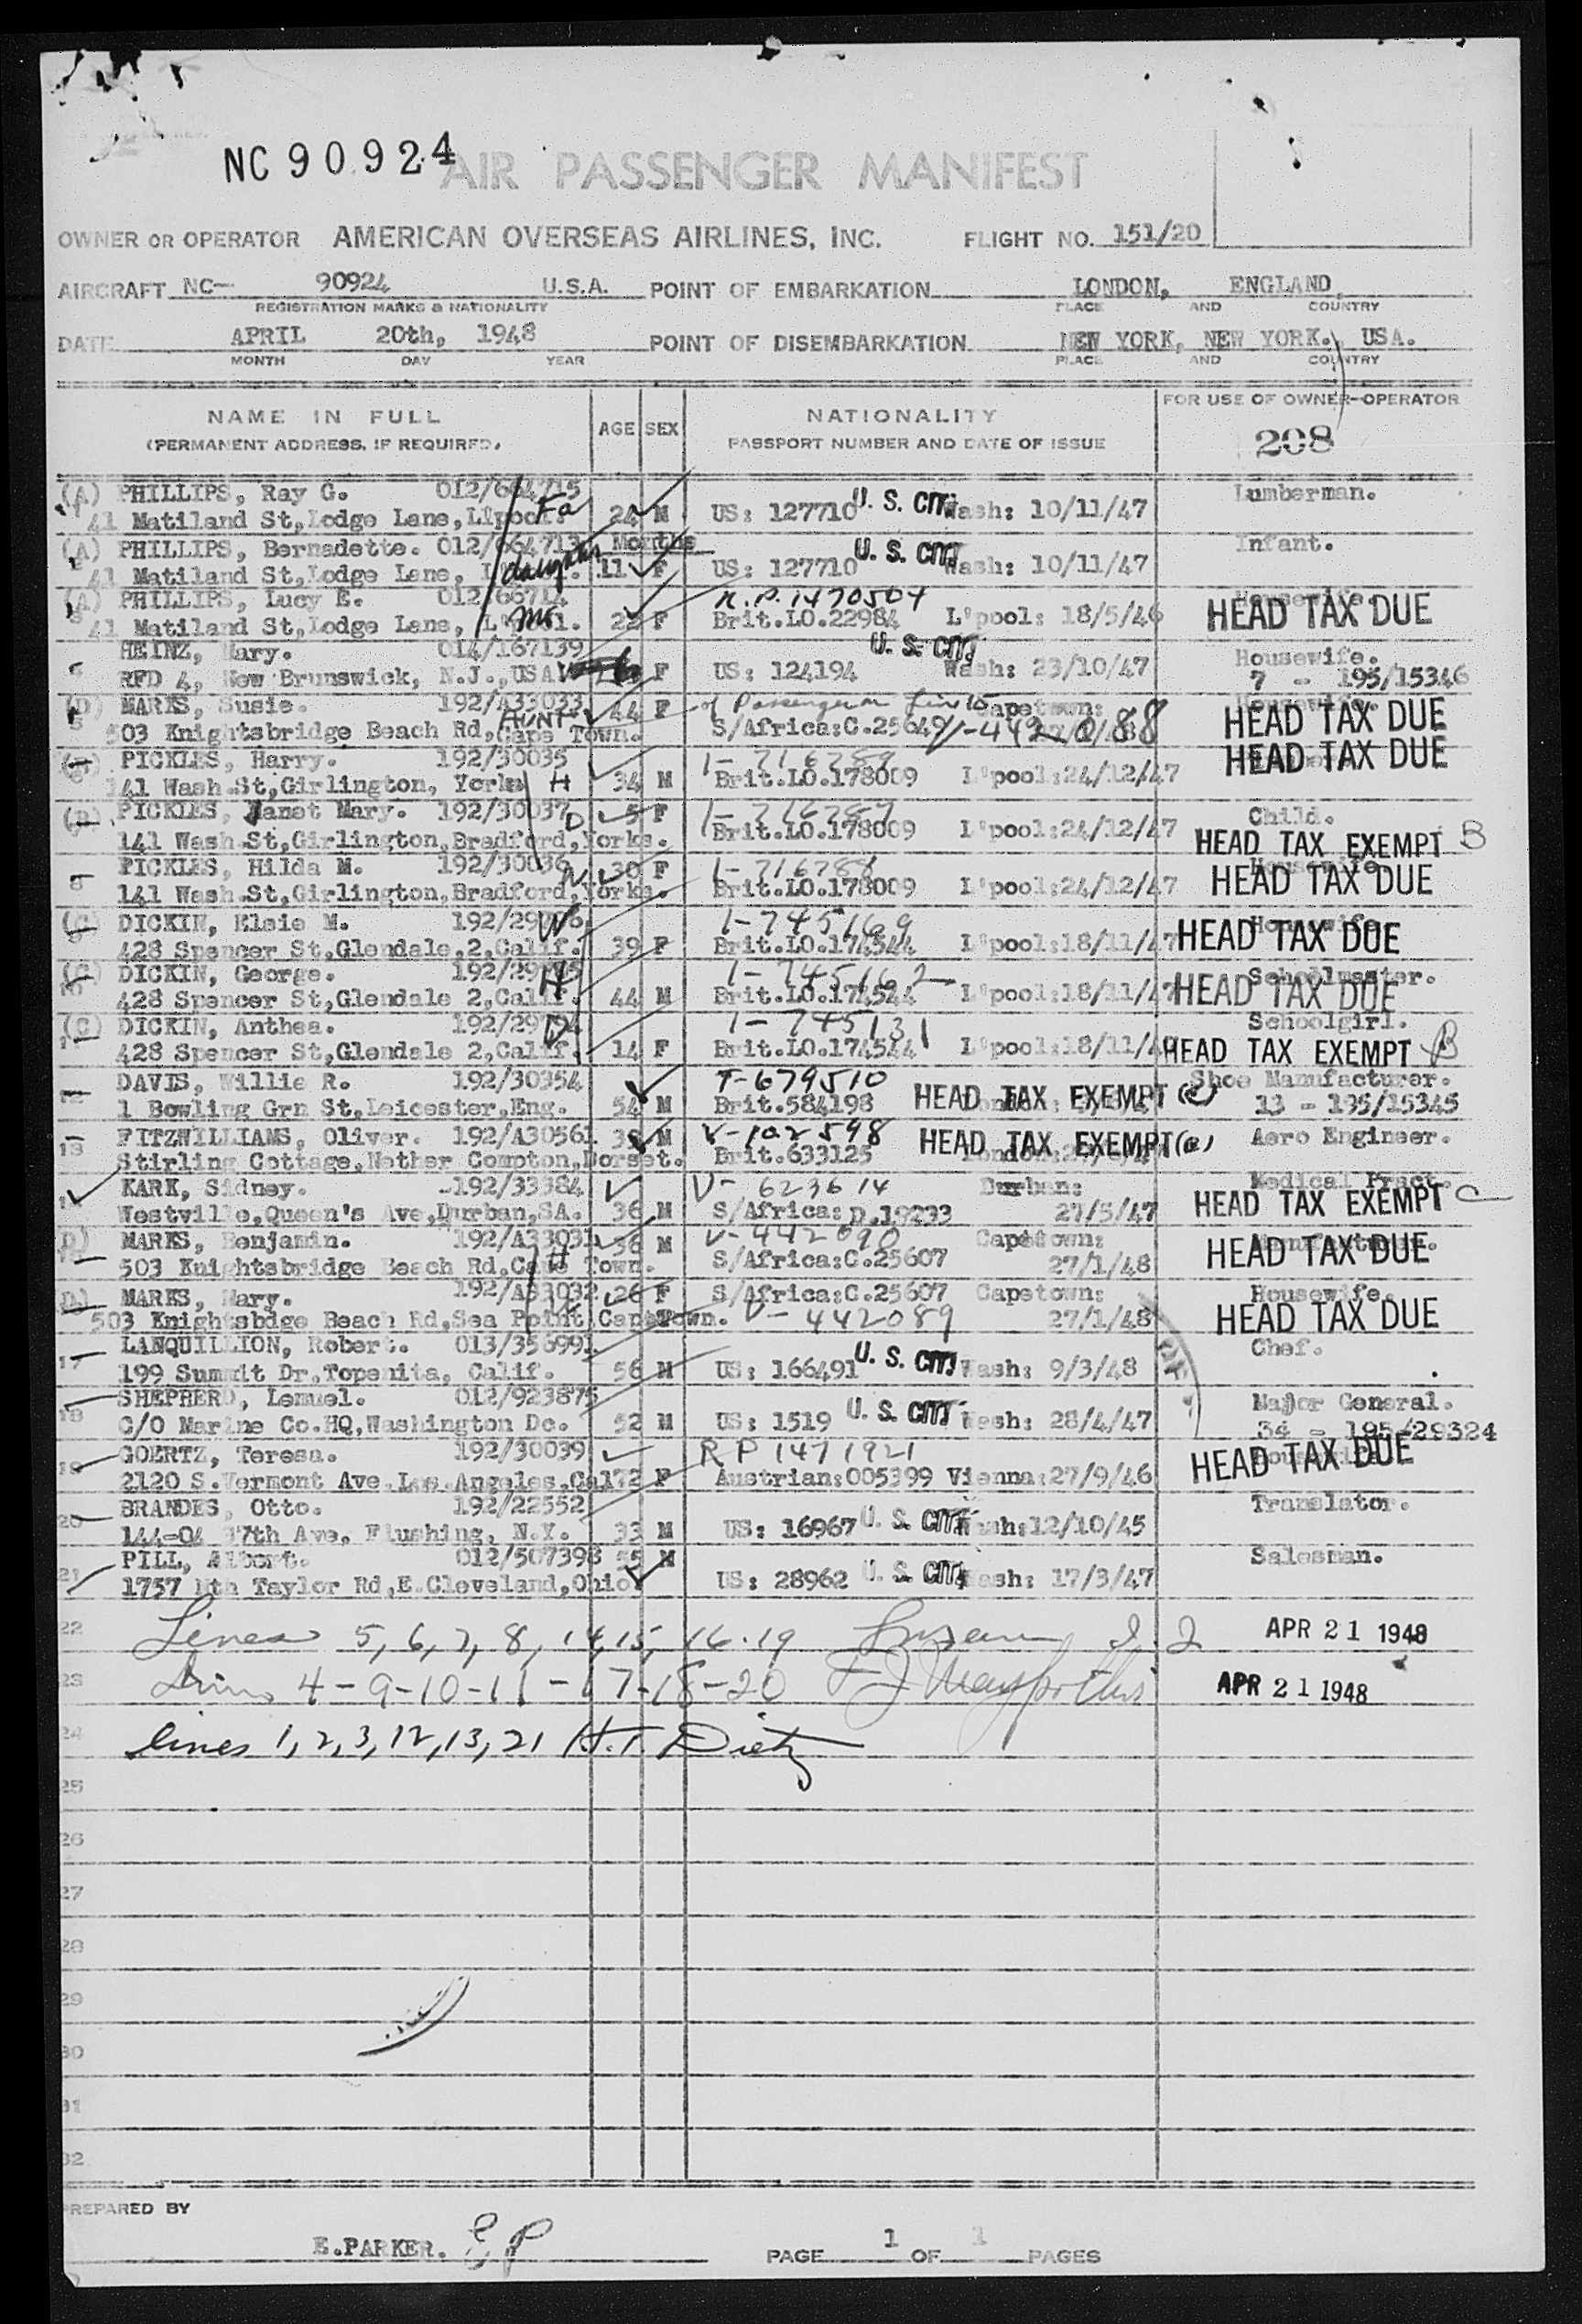 NC 90924
AIR PASSENGER MANIFEST
OWNER OR OPERATOR AMERICAN OVERSEAS AIRLINES, INC. FLIGHT NO. 151/20
AIRCRAFT NC- 90924 U.S.A. POINT OF EMBARKATION LONDON, ENGLAND
REGISTRATION MARKS & NATIONALITY PLACE AND COUNTRY
DATE APRIL 20th, 1948 POINT OF DISEMBARKATION NEW YORK, NEW YORK. USA.
MONTH DAY YEAR PLACE AND COUNTRY
NAME IN FULL AGE SEX NATIONALITY FOR USE OF OWNER-OPERATOR
(PERMANENT ADDRESS, IF REQUIRED) PASSPORT NUMBER AND DATE OF ISSUE 208
(A) PHILLIPS, Ray G. 012/664715 Lumberman.
41 Matiland St, Lodge Lane, L'pool. Fa 24 M US: 127710 U. S. CIT. Wash: 10/11/47
(A) PHILLIPS, Bernadette. 012/664713 Months Infant.
41 Matiland St, Lodge Lane, daughter 11 F US: 127710 U. S. CIT. Wash: 10/11/47
(A) PHILLIPS, Lucy E. 012/66714 R.P. 1470504 Housewife.
41 Matiland St, Lodge Lane, L'pool. Mo. F Brit.LO.22984 L'pool: 18/5/46 HEAD TAX DUE
HEINZ, Mary. 014/167139 U. S. CIT. Housewife.
RFD 4, New Brunswick, N.J., USA F US: 124194 Wash: 23/10/47 7 - 195/15346
(D) MARKS, Susie. 192/A33033 44 F of Passenger on Line 15 Capetown:
503 Knightsbridge Beach Rd, AUNT Cape Town. S/Africa:C.25649 V-442088 HEAD TAX DUE
PICKLES, Harry. 192/30035 1-716789 HEAD TAX DUE
141 Wash St, Girlington, Yorks H 34 M Brit.LO.178009 L'pool:24/12/47
(B) PICKLES, Janet Mary. 192/30037 D 5 F 1-716787 Child.
141 Wash St, Girlington, Bradford, Yorks. Brit.LO.178009 L'pool:24/12/47 HEAD TAX EXEMPT B
8 PICKLES, Hilda M. 192/30036 W 30 F 1-716788 Housewife
141 Wash St, Girlington, Bradford, Yorks. Brit.LO.178009 L'pool:24/12/47 HEAD TAX DUE
(C) DICKIN, Elsie M. W 1-745169 Housewife.
428 Spencer St, Glendale, 2, Calif. 39 F Brit.LO.174544 L'pool:18/11/47 HEAD TAX DUE
(C) DICKIN, George. H 1-745162 Schoolmaster.
428 Spencer St, Glendale 2, Calif. 44 M Brit.LO.174544 L'pool:18/11/47 HEAD TAX DUE
(C) DICKIN, Anthea. D 1-745131 Schoolgirl.
428 Spencer St, Glendale 2, Calif. 14 F Brit.LO.174544 L'pool:18/11/47 HEAD TAX EXEMPT B
12 DAVIS, Willie R. 192/30354 T-679510 Shoe Manufacturer.
1 Bowling Grn St, Leicester, Eng. 54 M Brit.584198 HEAD TAX EXEMPT (c) 13 - 195/15345
13 FITZWILLIAMS, Oliver. 192/A30561 M V-102598 Aero Engineer.
Stirling Cottage, Nether Compton, Dorset. Brit.633125 HEAD TAX EXEMPT (c)
KARK, Sidney. 192/33384 V-623614 Durban: Medical Pract.
Westville, Queen's Ave, Durban, SA. 36 M S/Africa: D.19233 27/5/47 HEAD TAX EXEMPT C
(D) MARKS, Benjamin. 192/A33031 36 M V-442090 Capetown:
503 Knightsbridge Beach Rd, Cape Town. H S/Africa:C.25607 27/1/48 HEAD TAX DUE
(D) MARKS, Mary. 192/A33032 26 F S/Africa:C.25607 Capetown: Housewife.
503 Knightsbdge Beach Rd, Sea Point Cape Town. V-442089 27/1/48 HEAD TAX DUE
17 LANQUILLION, Robert. 013/356991 Chef.
199 Summit Dr, Topenita, Calif. 56 M US: 166491 U. S. CIT. Wash: 9/3/48
18 SHEPHERD, Lemuel. 012/923875 Major General.
C/O Marine Co.HQ, Washington Dc. 52 M US: 1519 U. S. CIT. Wash: 28/4/47 34 - 195/29324
19 GOERTZ, Teresa. 192/30039 RP 1471921
2120 S.Vermont Ave, Los Angeles, Cal 72 F Austrian:005399 Vienna:27/9/46 HEAD TAX DUE
20 BRANDES, Otto. 192/22552 Translator.
144-04 17th Ave, Flushing, N.Y. 33 M US: 16967 U. S. CIT. Wash:12/10/45
21 PILL, Albert. 012/507398 55 M Salesman.
1757 Nth Taylor Rd, E.Cleveland, Ohio US: 28962 U. S. CIT. Wash: 17/3/47
22 Lines 5, 6, 7, 8, 14, 15, 16. 19 APR 21 1948
23 Lines 4-9-10-11-17-18-20 APR 21 1948
24 lines 1, 2, 3, 12, 13, 21 H.T. Dietz
25
26
27
28
29
30
31
32
PREPARED BY
E.PARKER. EP PAGE 1 OF 1 PAGES